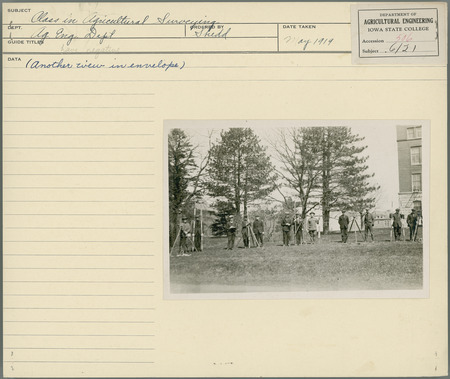 SUBJECT Class in Agricultural Surveying
DEPT. Ag. Eng. Dept ORDERED BY Shedd DATE TAKEN May 1919
GUIDE TITLES
DATA (Another view in envelope)
DEPARTMENT OF
AGRICULTURAL ENGINEERING
IOWA STATE COLLEGE
Accession
Subject 6/21